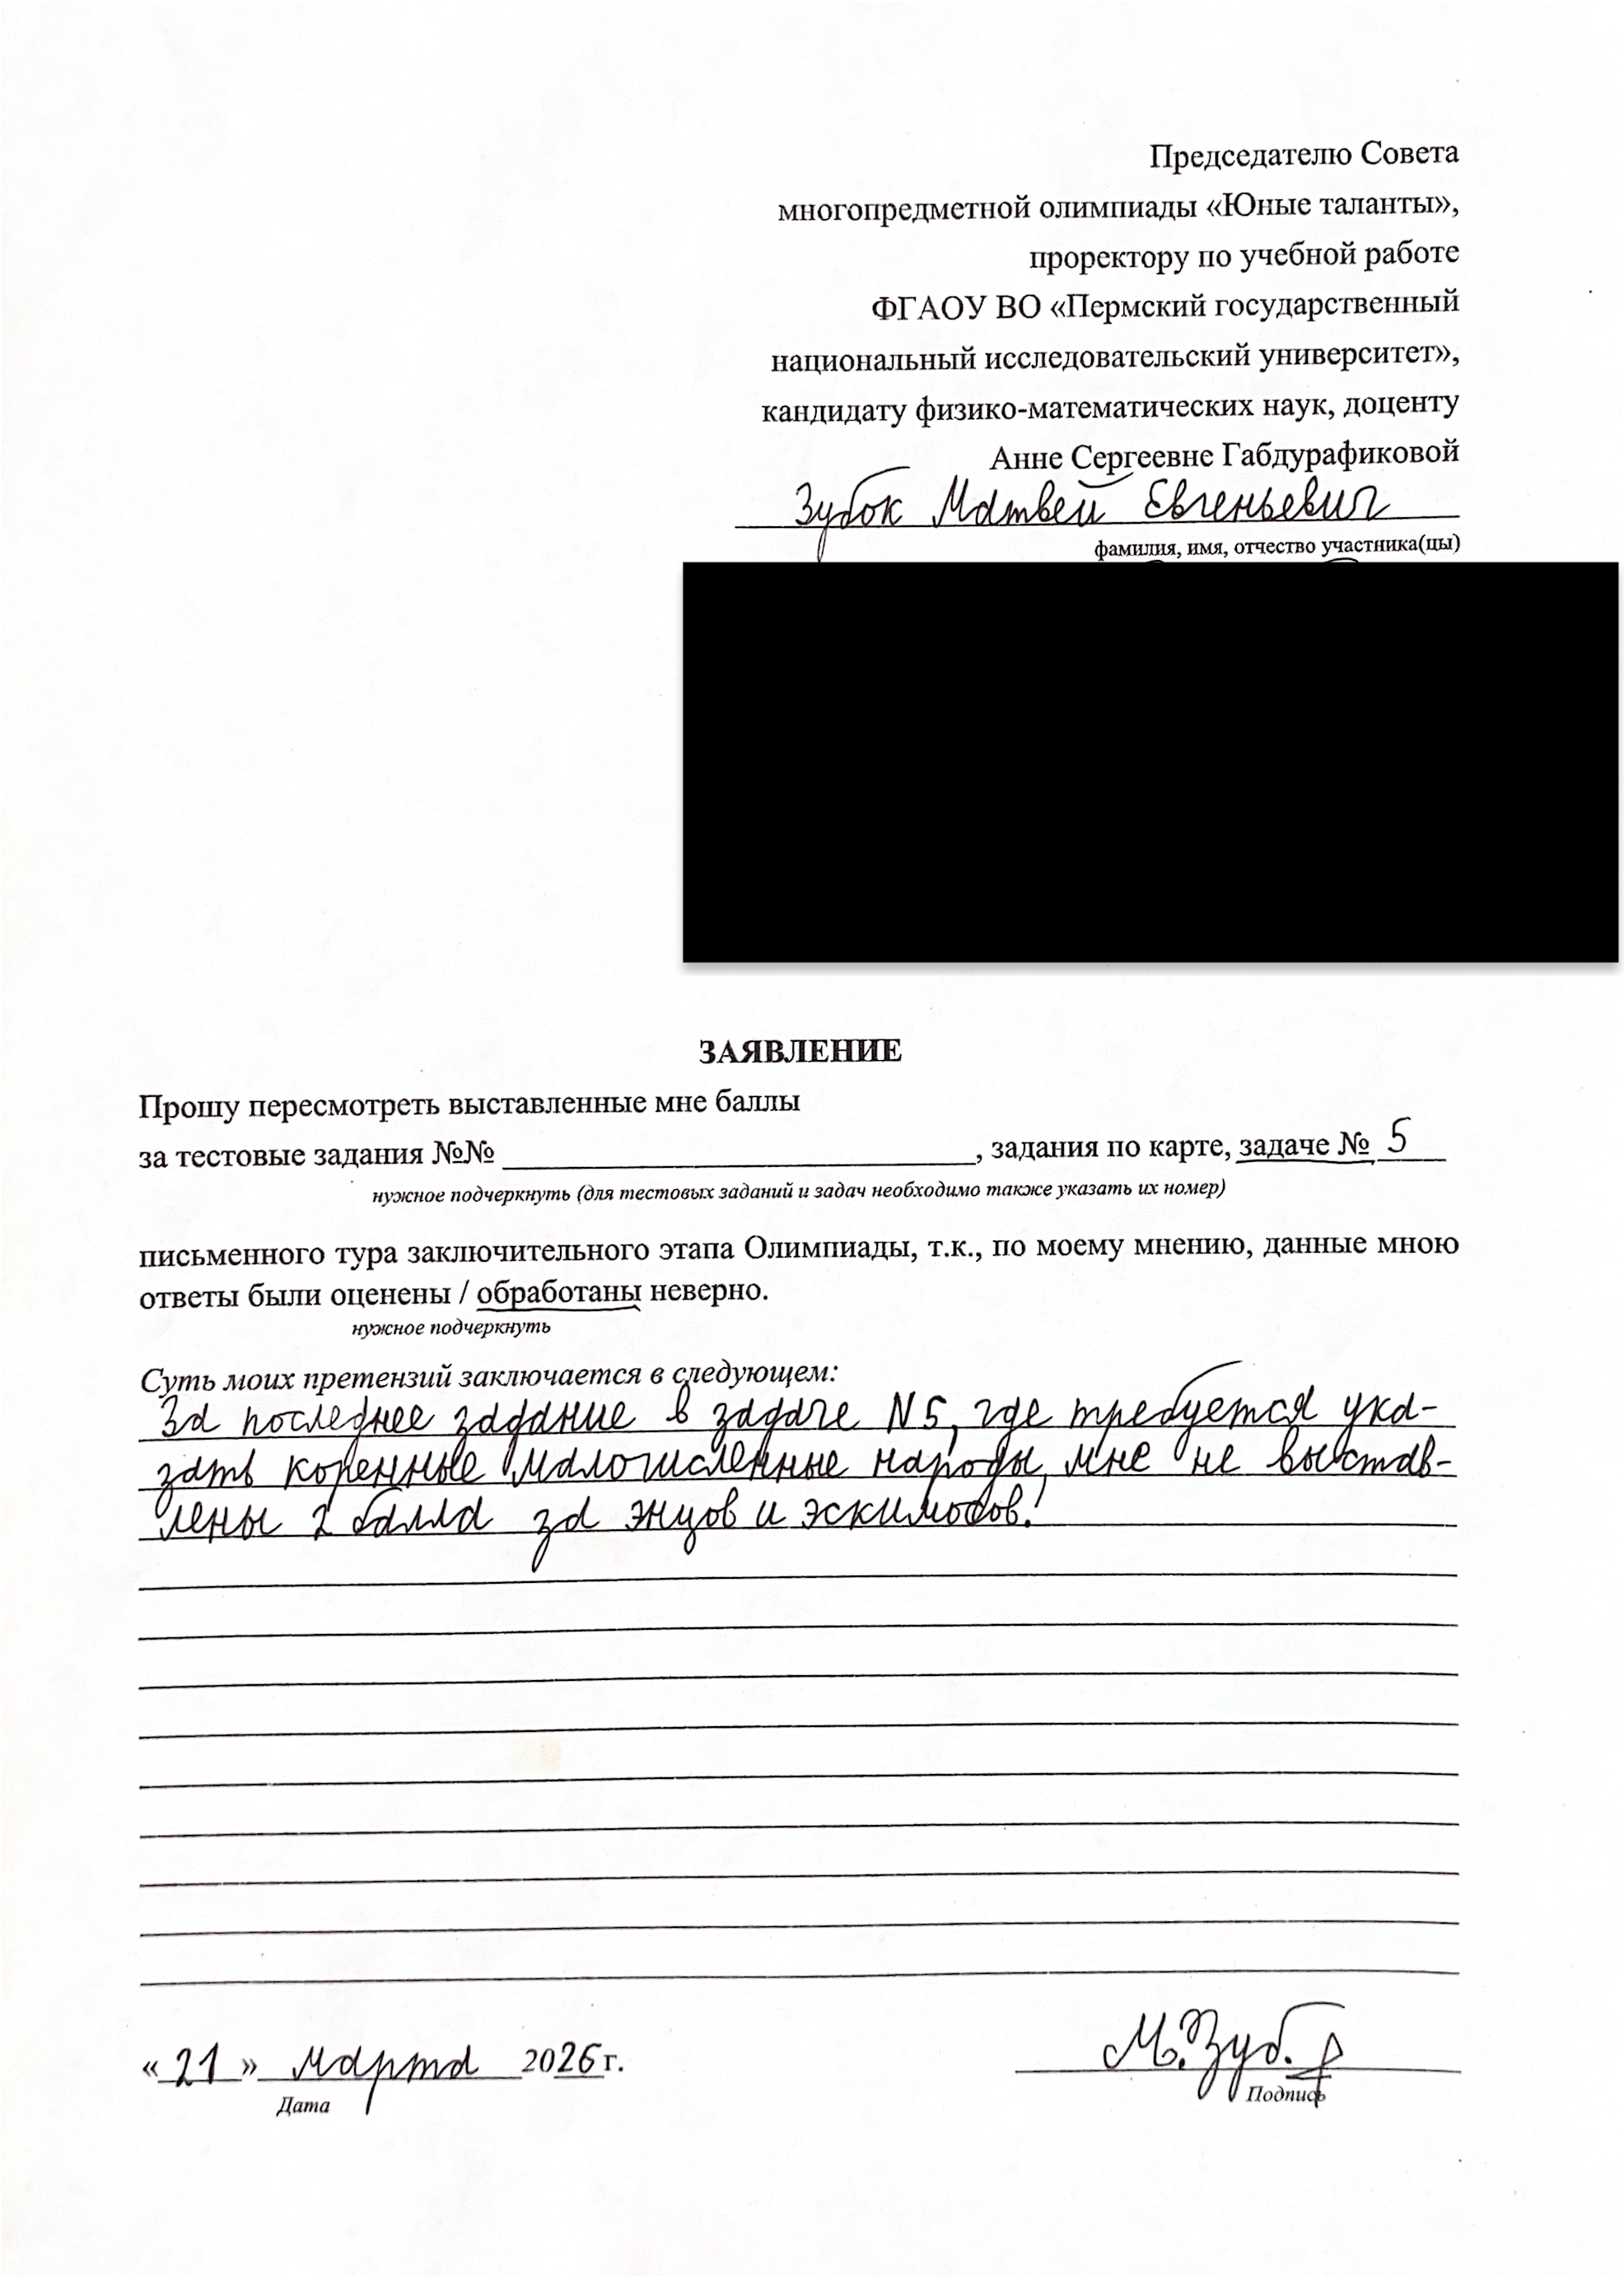 Председателю Совета
многопредметной олимпиады «Юные таланты»,
проректору по учебной работе
ФГАОУ ВО «Пермский государственный
национальный исследовательский университет»,
кандидату физико-математических наук, доценту
Анне Сергеевне Габдурафиковой
Зубок Матвей Евгеньевич
фамилия, имя, отчество участника(цы)
ЗАЯВЛЕНИЕ
Прошу пересмотреть выставленные мне баллы
за тестовые задания №№ , задания по карте, задаче № 5
нужное подчеркнуть (для тестовых заданий и задач необходимо также указать их номер)
письменного тура заключительного этапа Олимпиады, т.к., по моему мнению, данные мною
ответы были оценены / обработаны неверно.
нужное подчеркнуть
Суть моих претензий заключается в следующем:
За последнее задание в задаче №5, где требуется ука-
зать коренные малочисленные народы, мне не выстав-
лены 2 балла за энцов и эскимосов!
«21» марта 2026 г. М.Зуб.
Дата Подпись